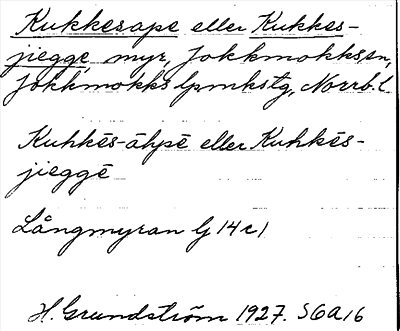 Kukkesape eller Kukkes-
jiegge, myr, Jokkmokks sn,
Jokkmokks lpmkstg, Norrb. l.
Kuhkēs-āhpē eller Kuhkēs-
jieggē
Långmyran Lj 14 c 1
H. Grundström 1927. S6a16